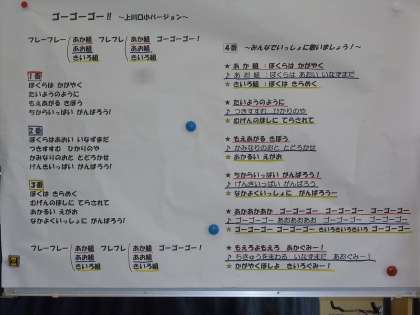 ゴーゴーゴー!! ～上川口小バージョン～
フレーフレー あか組 フレフレ あか組 ゴーゴーゴー!
あお組 あお組
きいろ組 きいろ組
1番
ぼくらは かがやく
たいようのように
もえあがる きぼう
ちからいっぱい がんばろう!
2番
ぼくらはあおい いなずまだ
つきすすむ ひかりのや
かみなりのおと とどろかせ
げんきいっぱい がんばろう!
3番
ぼくは きらめく
むげんのほしに てらされて
あかるい えがお
なかよくいっしょに がんばろう!
フレーフレー あか組 フレフレ あか組 ゴーゴーゴー!
あお組 あお組
きいろ組 きいろ組
4番 ～みんなでいっしょに歌いましょう!～
★ あ か 組 :ぼくらは かがやく
♪ あ お 組 :ぼくらは あおい いなずまだ
☆ きいろ組 :ぼくは きらめく
★ たいようのように
♪ つきすすむ ひかりのや
☆ むげんのほしに てらされて
★ もえあがる きぼう
♪ かみなりのおと とどろかせ
☆ あかるい えがお
★ ちからいっぱい がんばろう!
♪ げんきいっぱい がんばろう
☆ なかよくいっしょに がんばろうー
★ あかあかあか ゴーゴーゴー ゴーゴーゴー ゴーゴーゴー
♪ ゴーゴーゴー あおあおあお ゴーゴーゴー ゴーゴーゴー
☆ ゴーゴーゴー ゴーゴーゴー きいろきいろきいろ ゴーゴーゴー
★ もえろよもえろ あかぐみー!
♪ ちきゅうをまわる いなずまだ あおぐみー!
☆ かがやくほしよ きいろぐみー!